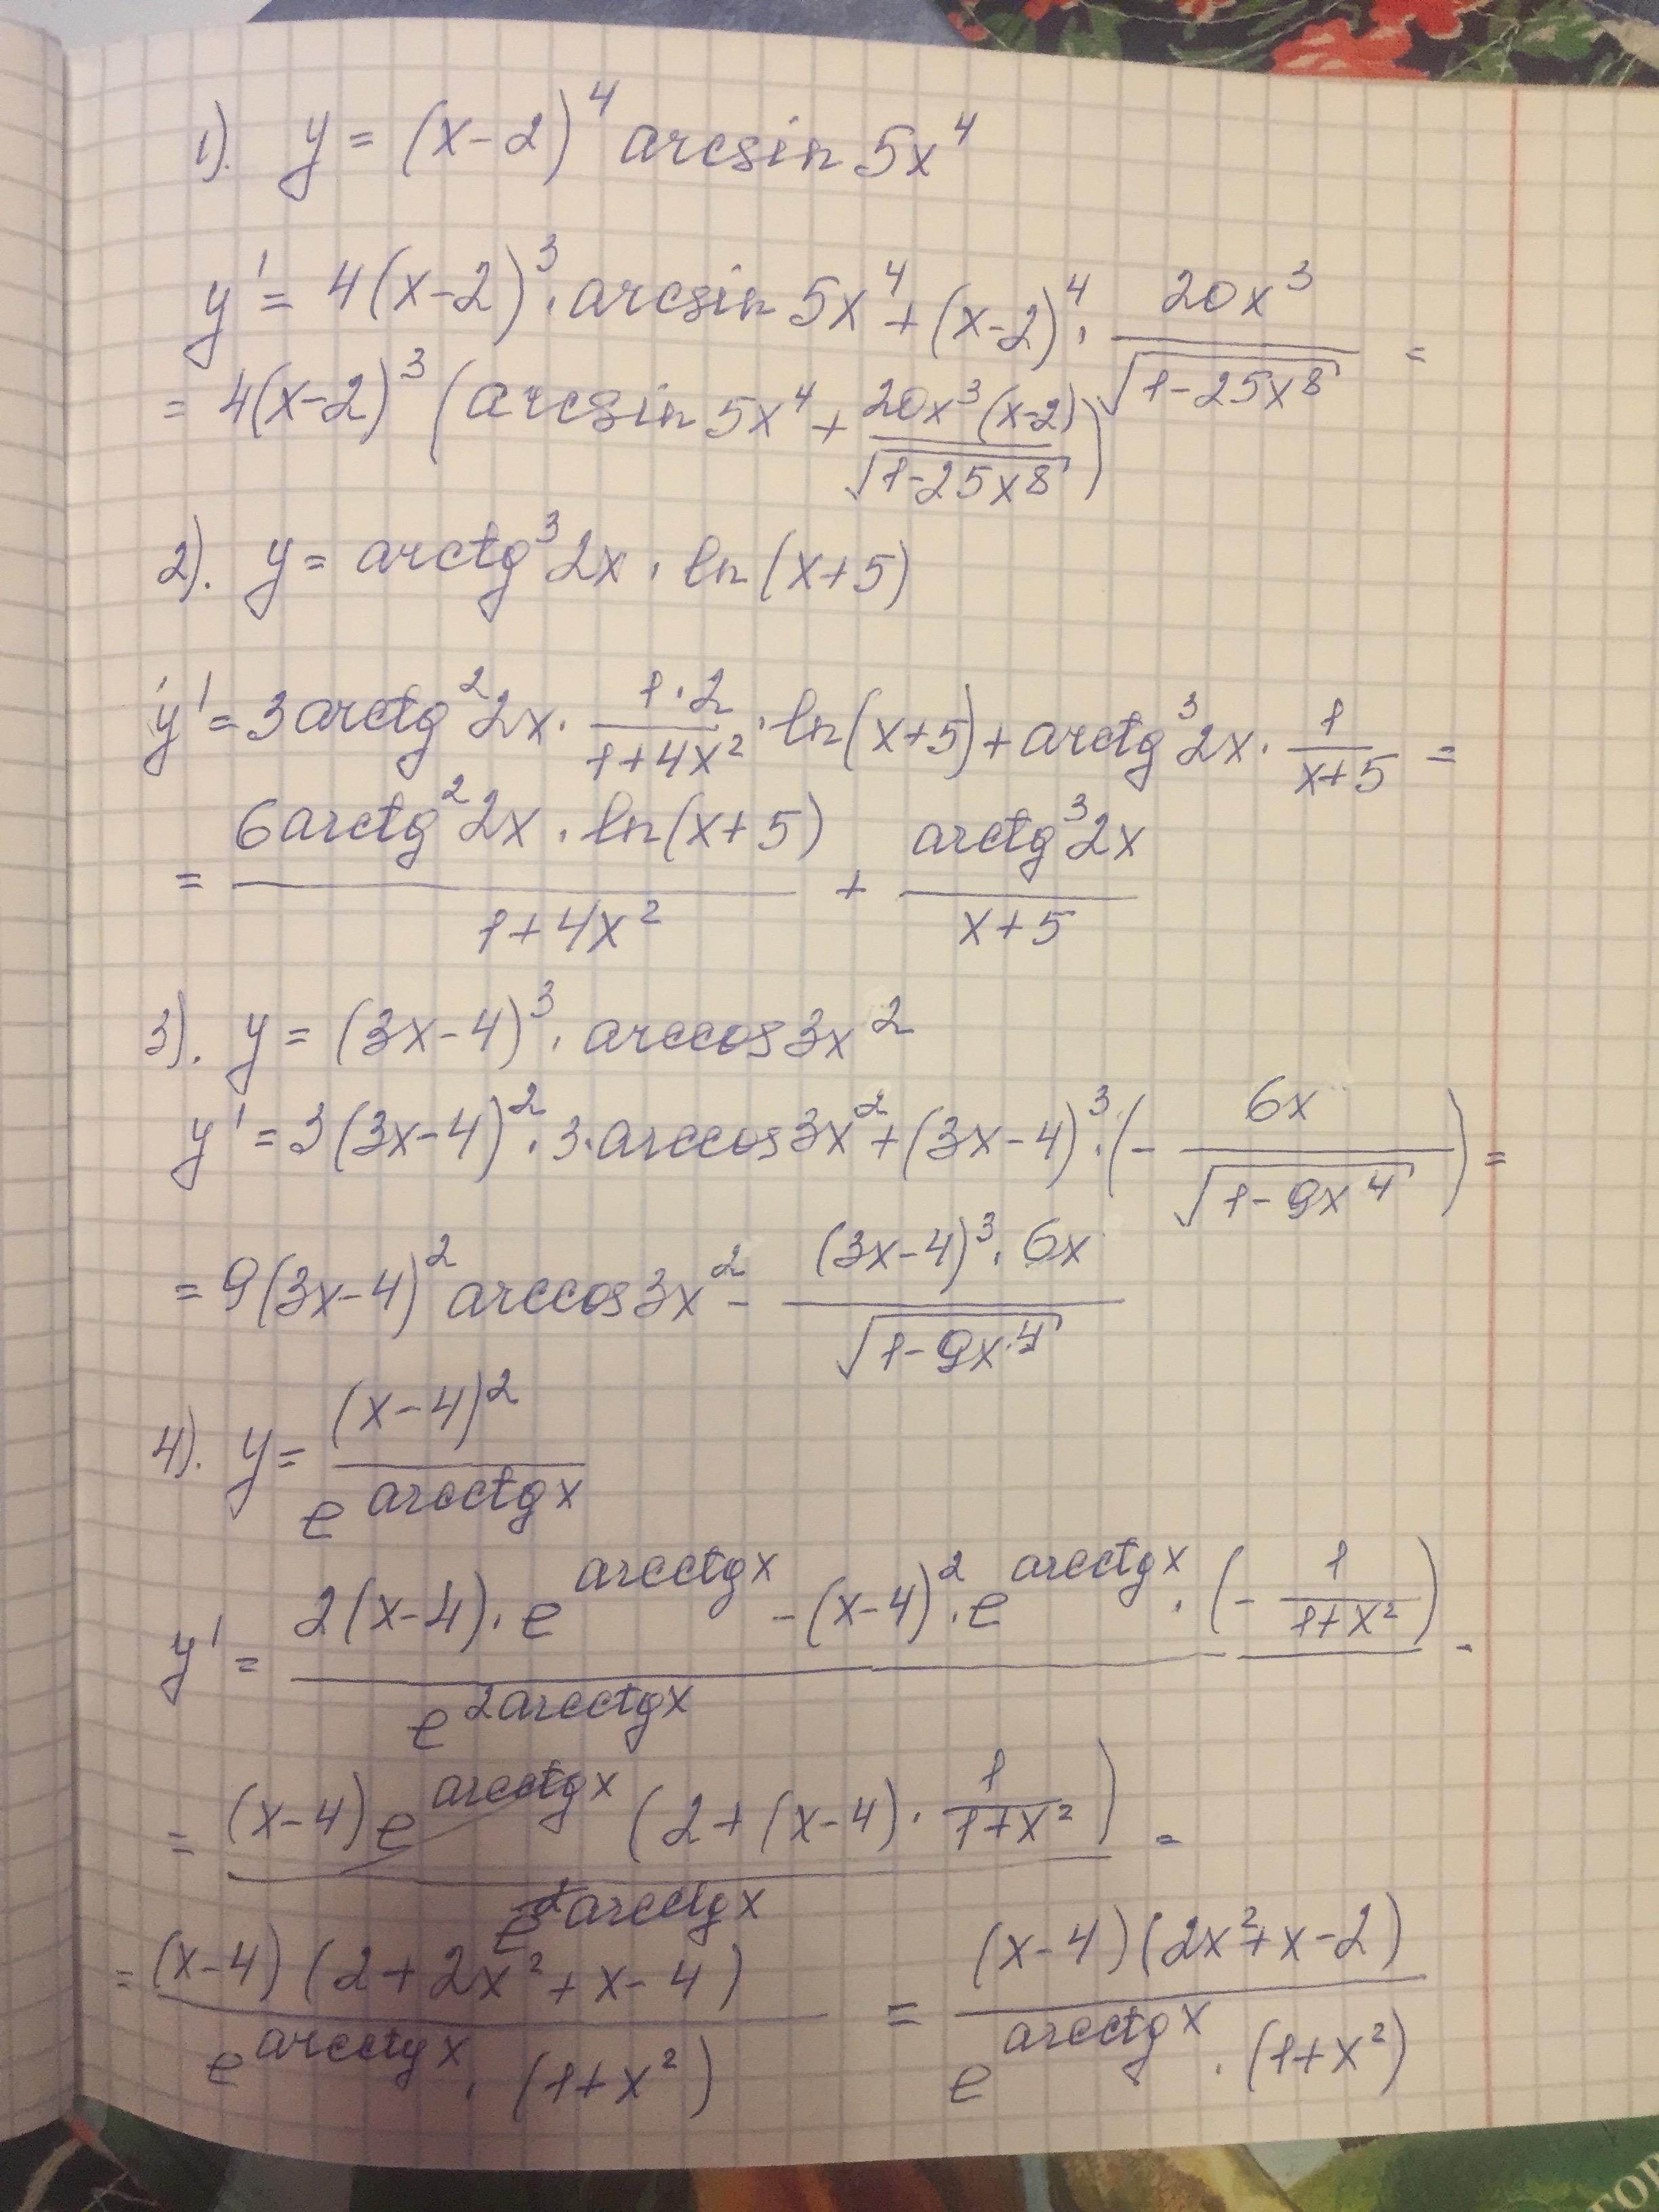 1). y = (x-2)^4 arcsin 5x^4
y' = 4(x-2)^3 · arcsin 5x^4 + (x-2)^4 · 20x^3 / √(1-25x^8) =
= 4(x-2)^3 (arcsin 5x^4 + 20x^3 (x-2) / √(1-25x^8))
2). y = arctg^3 2x · ln(x+5)
y' = 3 arctg^2 2x · 1·2 / (1+4x^2) · ln(x+5) + arctg^3 2x · 1 / (x+5) =
= 6 arctg^2 2x · ln(x+5) / (1+4x^2) + arctg^3 2x / (x+5)
3). y = (3x-4)^3 · arccos 3x^2
y' = 3(3x-4)^2 · 3 · arccos 3x^2 + (3x-4)^3 · (- 6x / √(1-9x^4)) =
= 9(3x-4)^2 arccos 3x^2 - (3x-4)^3 · 6x / √(1-9x^4)
4). y = (x-4)^2 / e^(arcctg x)
y' = (2(x-4) · e^(arcctg x) - (x-4)^2 · e^(arcctg x) · (- 1 / (1+x^2))) / e^(2arcctg x) =
= (x-4) e^(arcctg x) (2 + (x-4) · 1 / (1+x^2)) / e^(2arcctg x) =
= (x-4) (2+2x^2+x-4) / (e^(arcctg x) · (1+x^2)) = (x-4)(2x^2+x-2) / (e^(arcctg x) · (1+x^2))